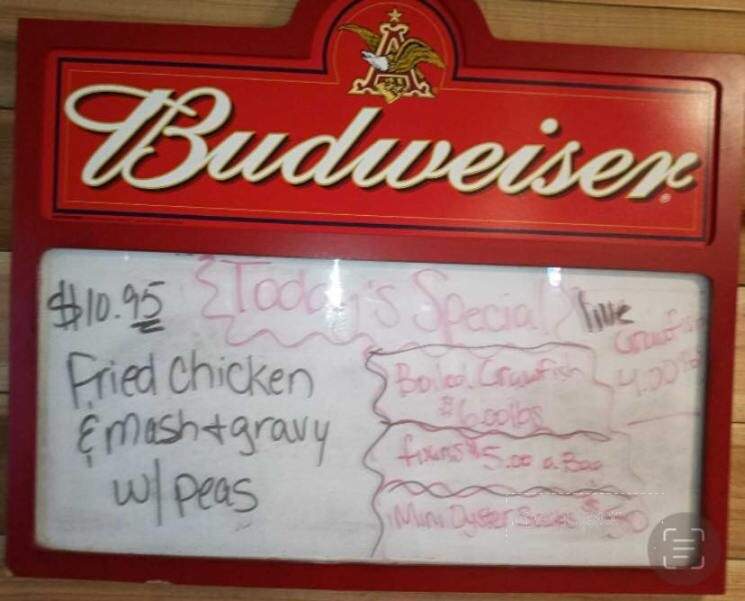 Budweiser
Today's Special
$10.95
Fried Chicken
& mash + gravy
w/ peas
live
Crawfish
4.00 lb
Boiled Crawfish
$6.00 lbs
fixins $5.00 a Bag
Mini Oyster Sacks $